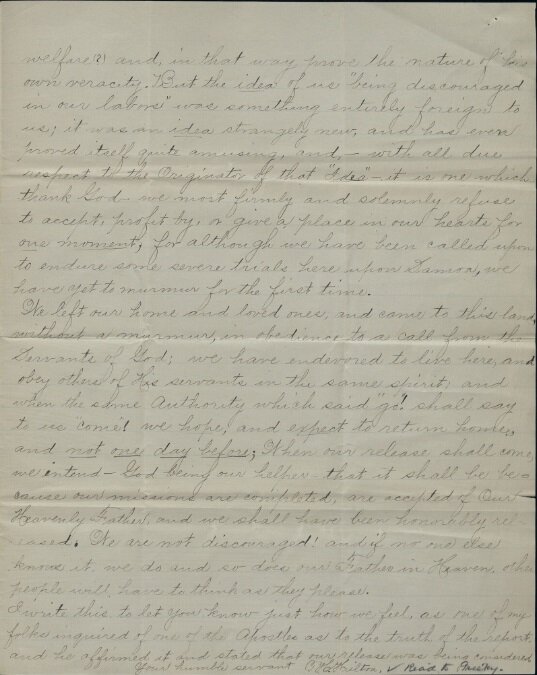 welfare?) and, in that way prove the nature of his
own veracity. But the idea of us "being discouraged
in our labors" was something entirely foreign to
us; it was an idea strangely new, and has even
proved itself quite amusing, and, - with all due
respect to the "Originator of that "Idea" - it is one which
thank God - we most firmly and solemnly refuse
to accept, profit by, or give a place in our hearts for
one moment, for although we have been called upon
to endure some severe trials, here upon Samoa, we
have yet to murmur for the first time.
We left our home and loved ones, and came to this land,
without a murmur, in obedience to a call from the
Servants of God; we have endevored to live here, and
obey others of His servants in the same spirit; and
when the same Authority which said "go"! shall say
to us come! we hope, and expect to return home,
and not one day before; When our release shall come,
we intend - God being our helper - that it shall be be-
cause our missions are completed, are accepted of Our
Heavenly Father, and we shall have been honorably rel-
eased. We are not discouraged! and if no one else
knows it, we do and so does our Father in Heaven, other
people will have to think as they please.
I write this, to let you know just how we feel, as one of my
folks inquired of one of the Apostles as to the truth of the report,
and he affirmed it and stated that our release was being considered
Your humble servant
✓ Read to Presidency.